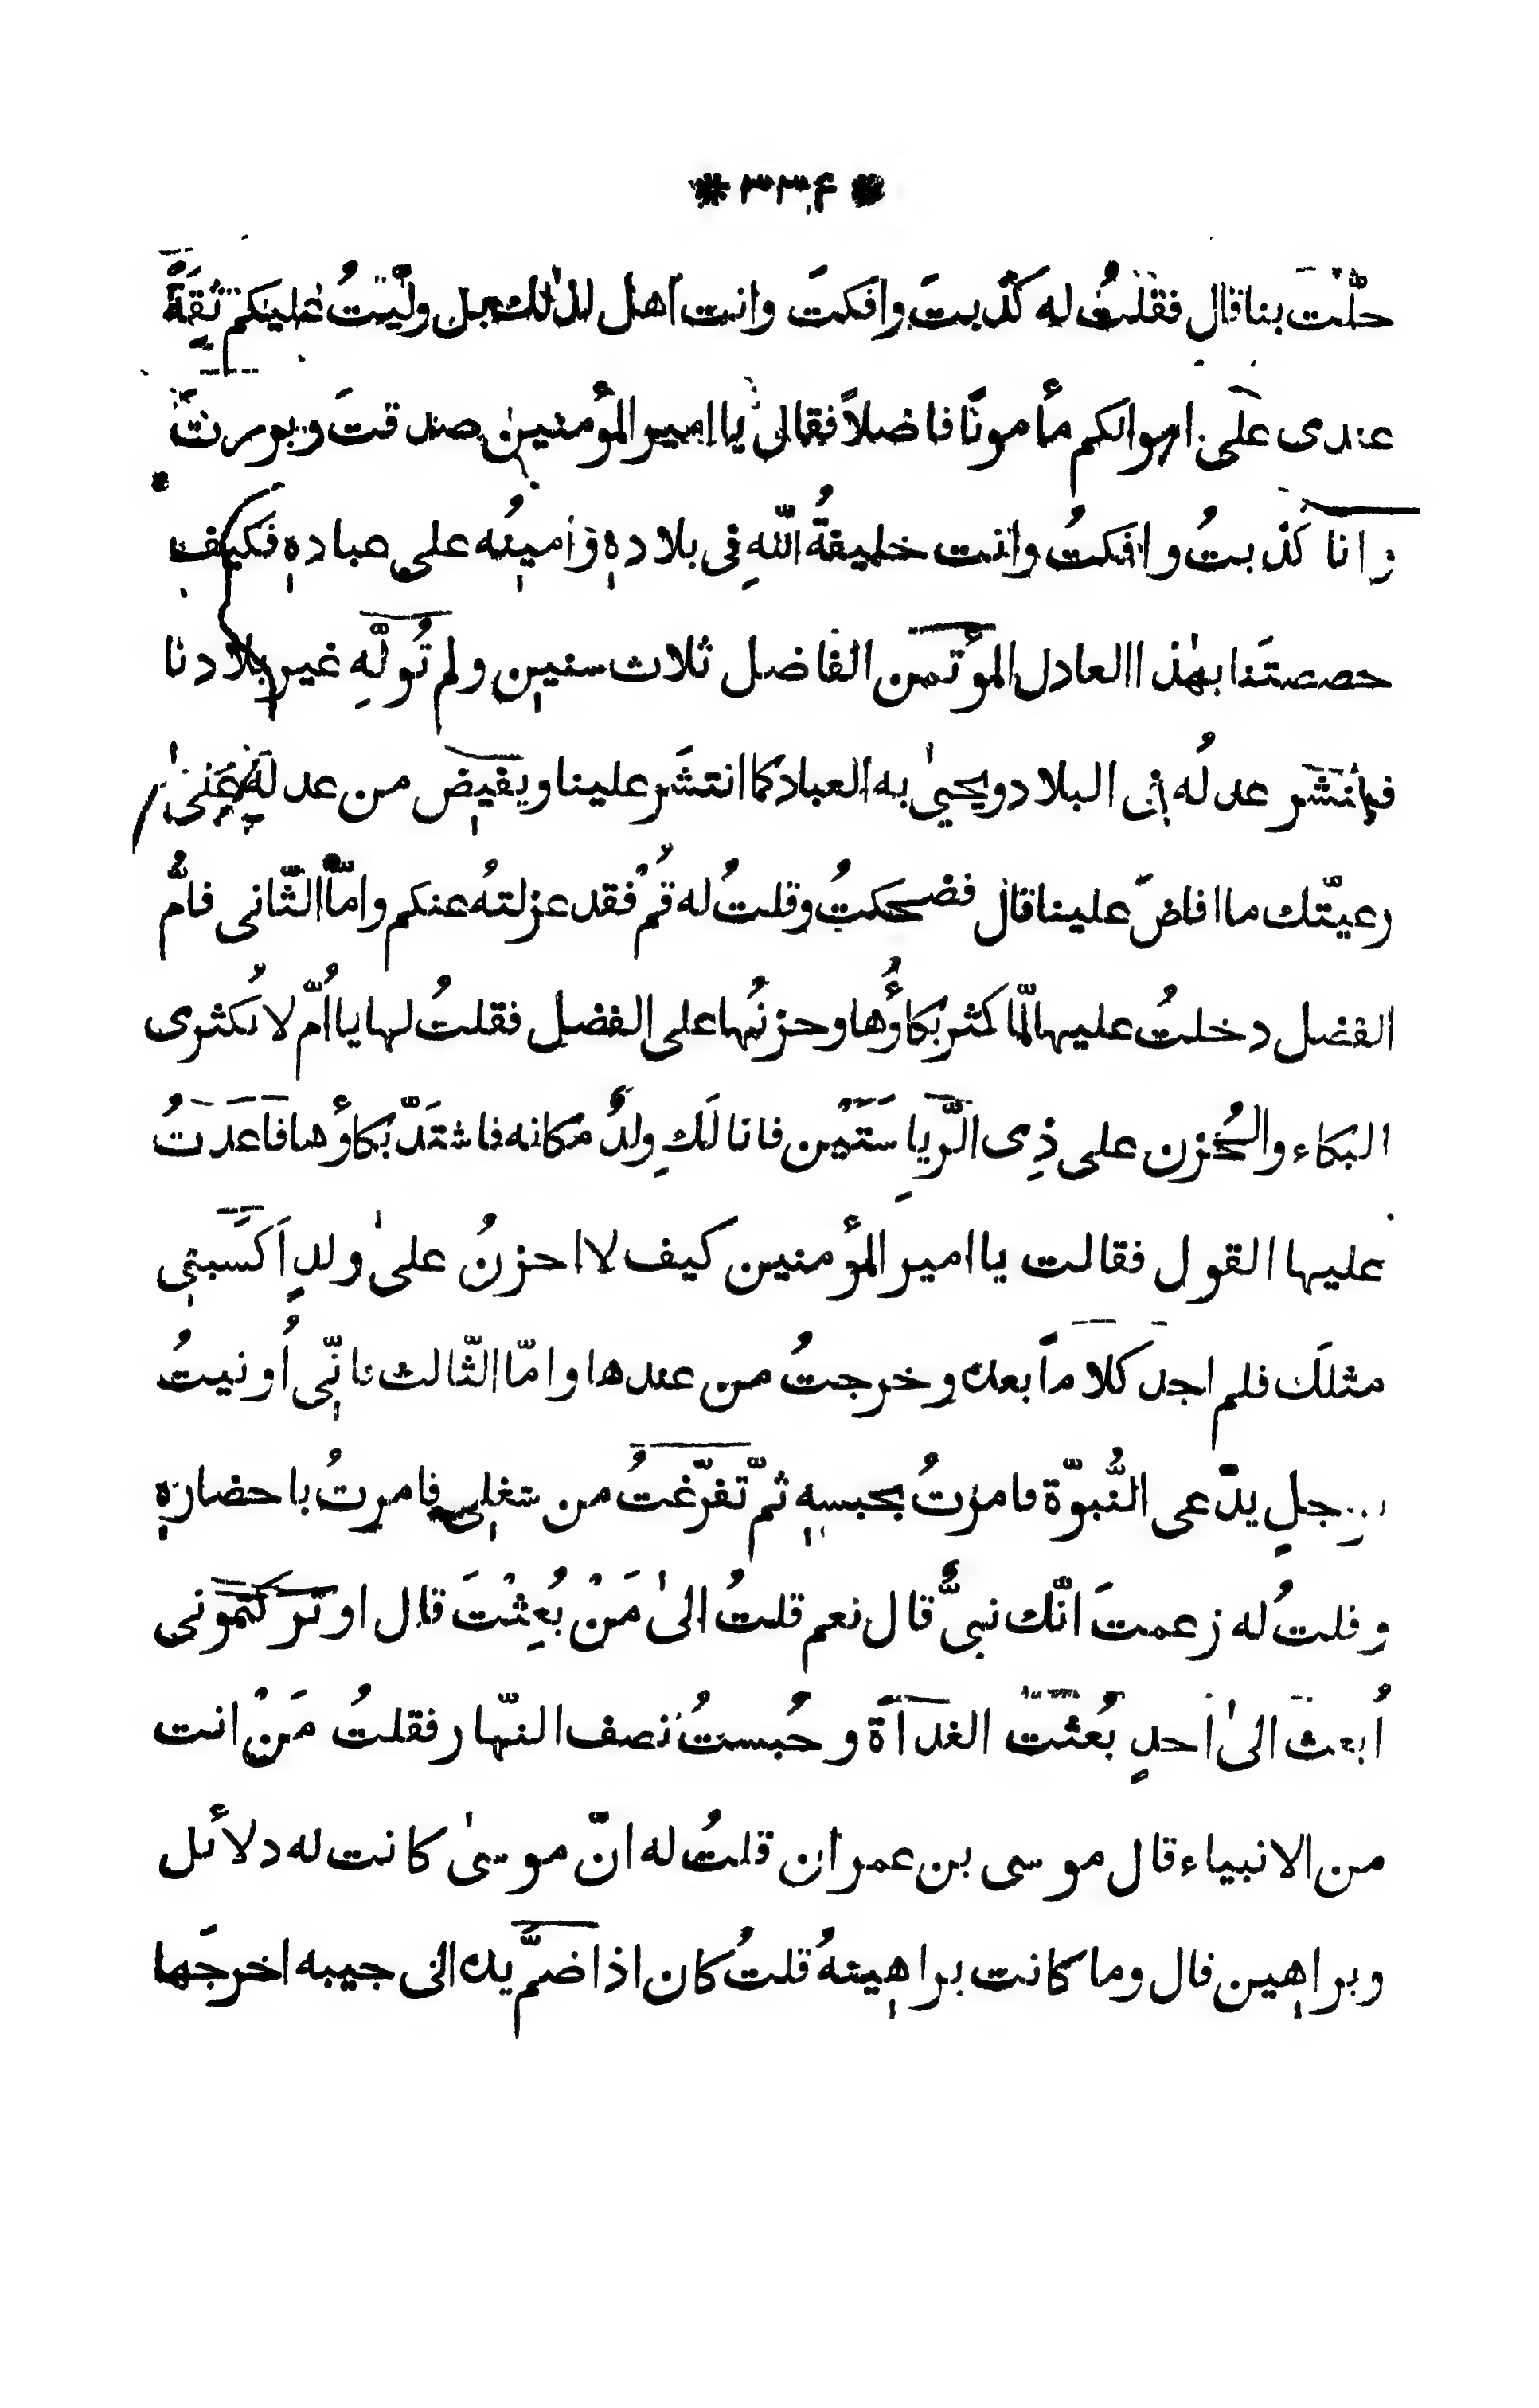 * ٣٣۴ *
حلّت بنا قال فقلتُ له كذبتَ وافكتَ وانت اهل لذٰلك بل ولّيتُ عليكم ثِقَةً
عندى على اموالكم مأمونًا فاضلاً فقال يا امير المؤمنين صدقتَ وبررتَ
وانا كذبتُ وافكتُ وانت خليفةُ اللّهِ فى بلادهٖ وامينُه على عبادهٖ فكيف
خصصتَنا بهٰذا العادل المؤتمن الفاضل ثلاث سنين ولم تُولّهِ غير بلادنا
فينشر عدلُه فى البلاد ويحيىٰ به العباد كما انتشَر علينا ويفيض من عدله غنىٰ
رعيّتك ما افاضَ علينا قال فضحكتُ وقلتُ له قُمْ فقد عزلتهُ عنكم وامّا الثّانى فامُّ
الفضل دخلتُ عليها لمّا كثر بُكاؤُها وحزنُها على الفضل فقلتُ لها يا اُمّ لا تُكثرى
البكاء والحُزن على ذِى الرّياسَتَين فانا لَكِ ولدٌ مكانه فاشتَدّ بُكاؤُها فاعَدتُ
عليها القول فقالت يا امير المؤمنين كيف لا احزنُ علىٰ ولدٍ اَكسَبنى
مثلَك فلم اجد كلاماً بعدهٗ وخرجتُ من عندها وامّا الثّالث فانّى اُوتيتُ
برجلٍ يدّعى النُّبوّة فامرتُ بحبسهٖ ثمّ تفرّغتُ من شغلى فامرتُ باحضارهٖ
وقلتُ له زعمتَ انّك نبىٌّ قال نعم قلتُ الىٰ مَنْ بُعِثْتَ قال اوتركتمونى
اُبعث الىٰ احدٍ بُعثت الغداة وحُبستُ نصف النّهار فقلتُ مَنْ انت
من الانبياء قال موسى بن عمران قلتُ له انّ موسىٰ كانت له دلائل
وبراهين قال وما كانت براهينهُ قلتُ كان اذا ضمَّ يده الى جيبه اخرجَها